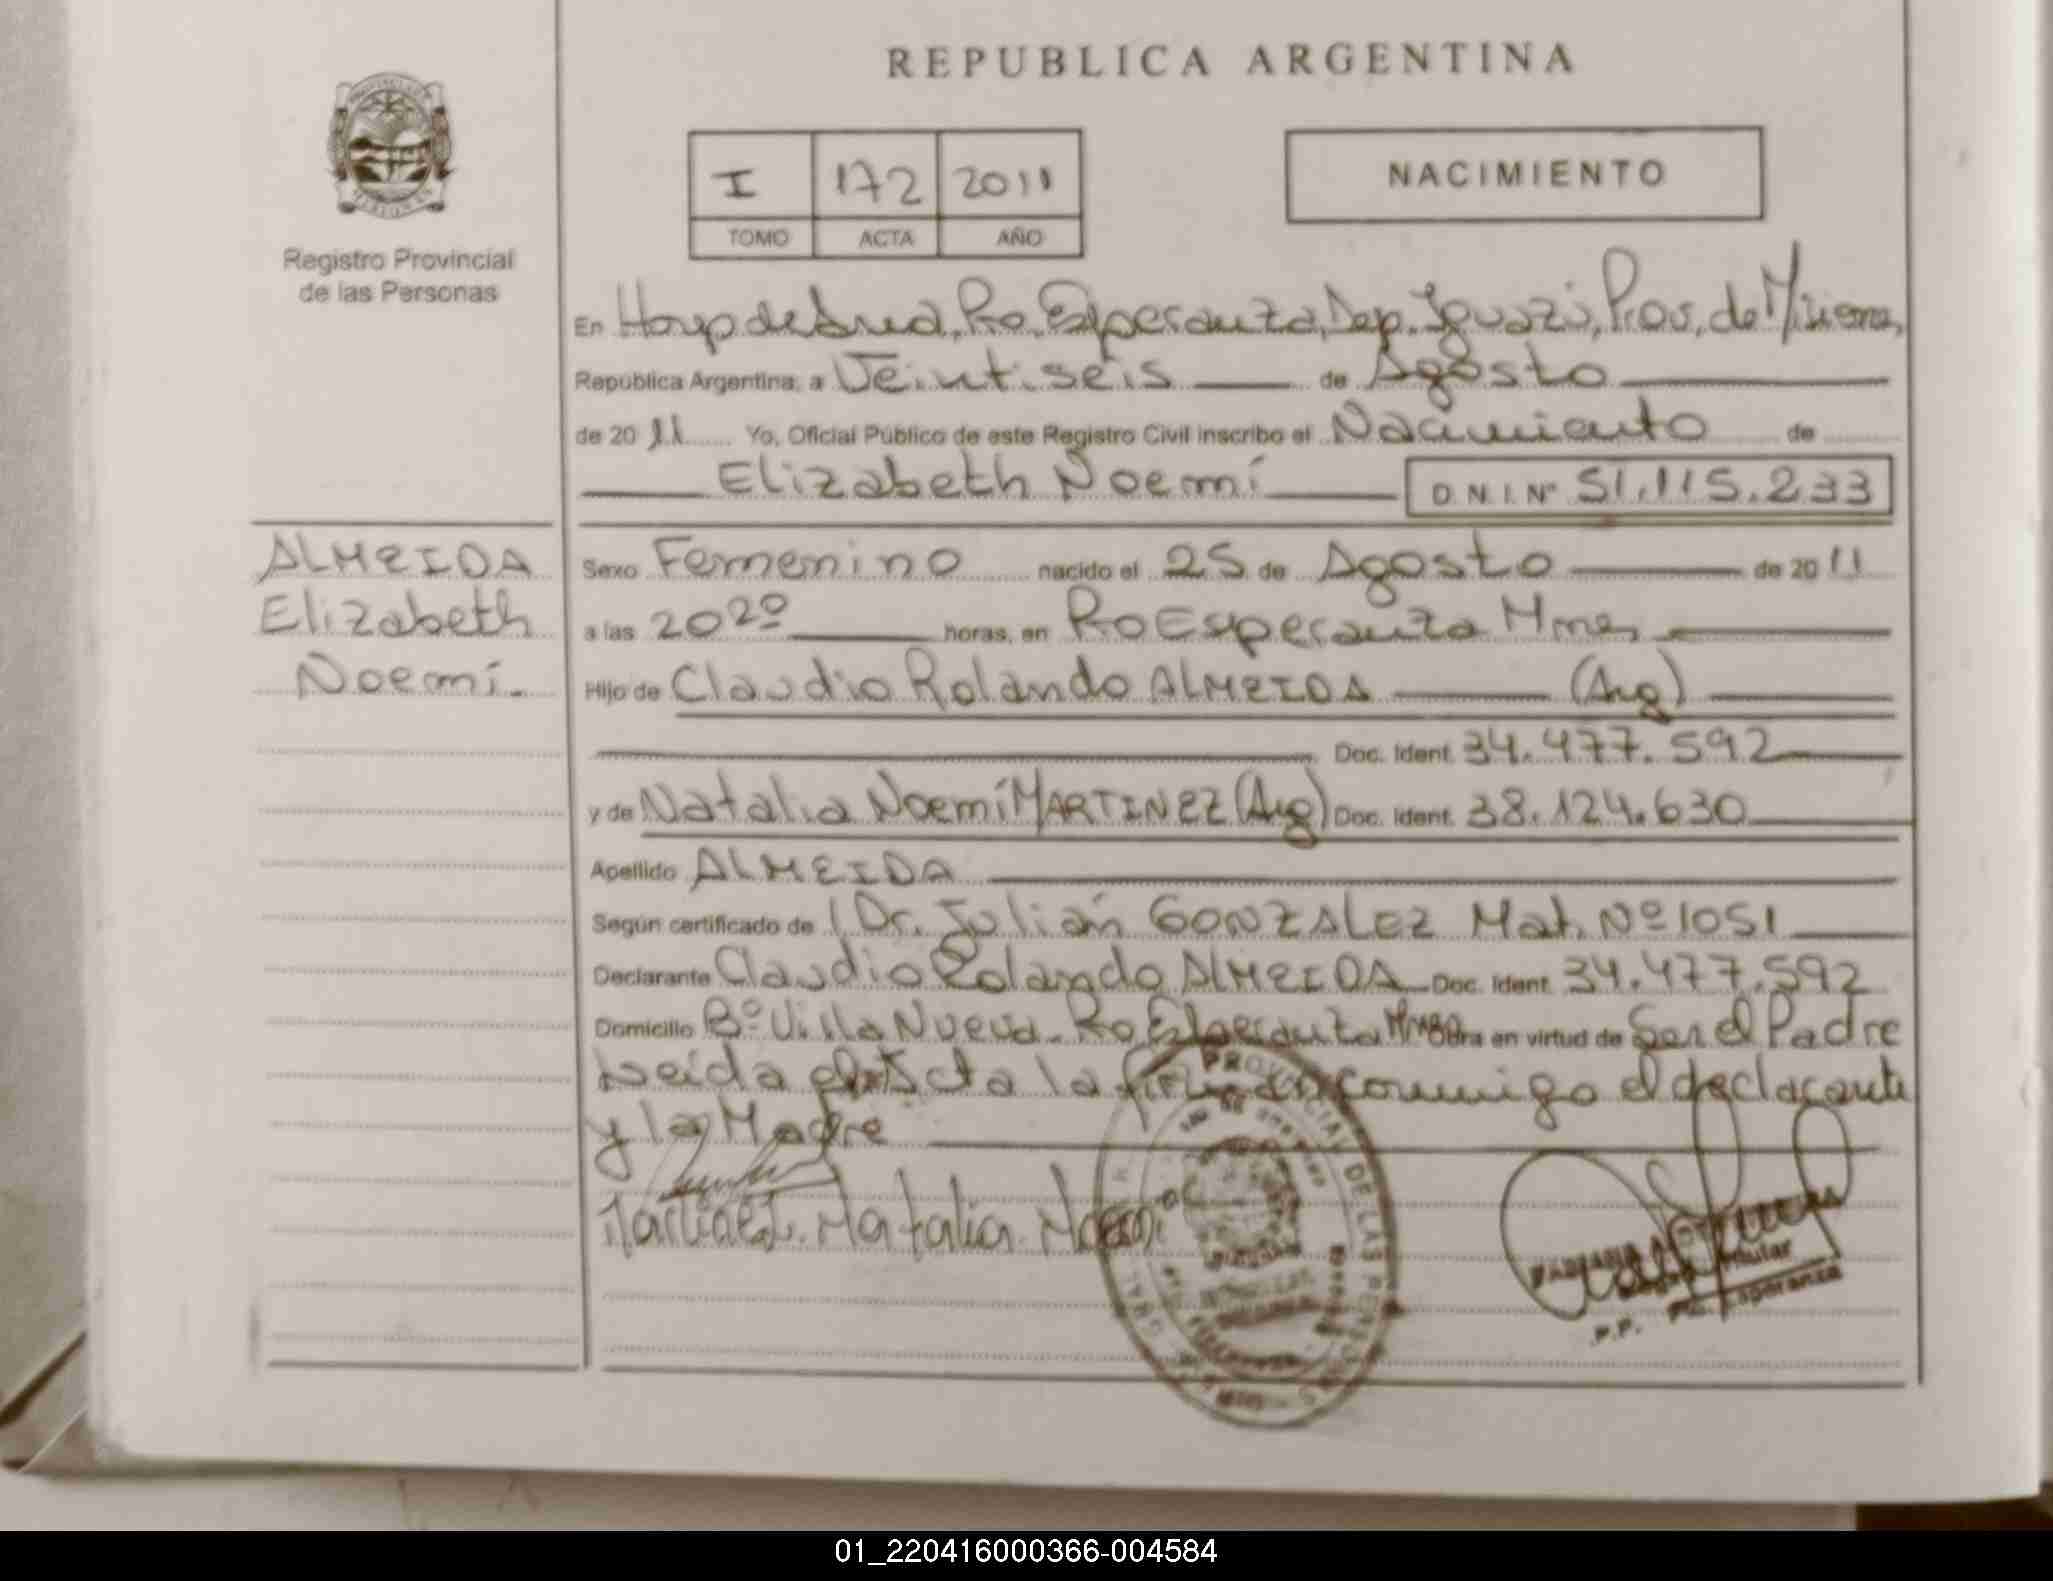 REPUBLICA ARGENTINA
I 172 2011
TOMO ACTA AÑO
NACIMIENTO
Registro Provincial
de las Personas
En Hosp de Area, Pto. Esperanza, Dep. Iguazú, Prov, de Misiones,
República Argentina, a Veintiseis de Agosto
de 2011 Yo, Oficial Público de este Registro Civil inscribo el Nacimiento de
Elizabeth Noemí D.N.I.Nº 51.115.233
ALMEIDA
Elizabeth
Noemí.
Sexo Femenino nacido el 25 de Agosto de 2011
a las 20²⁰ horas, en Pto Esperanza Mnes,
Hijo de Claudio Rolando ALMEIDA (Arg)
Doc. Ident. 34.477.592
y de Natalia Noemí MARTINEZ (Arg) Doc. Ident. 38.124.630
Apellido ALMEIDA
Según certificado de Dr. Julián GONZALEZ Mat. Nº 1051
Declarante Claudio Rolando ALMEIDA Doc. Ident. 34.477.592
Domicilio Bº Villa Nueva. Pto Esperanza en virtud de Ser el Padre
Leída el Acta la firman conmigo el declarante
y la Madre
Natalia Noemi
PROVINCIAL DE LAS PERSONAS
Titular
P.P. Pto. Esperanza
01_220416000366-004584